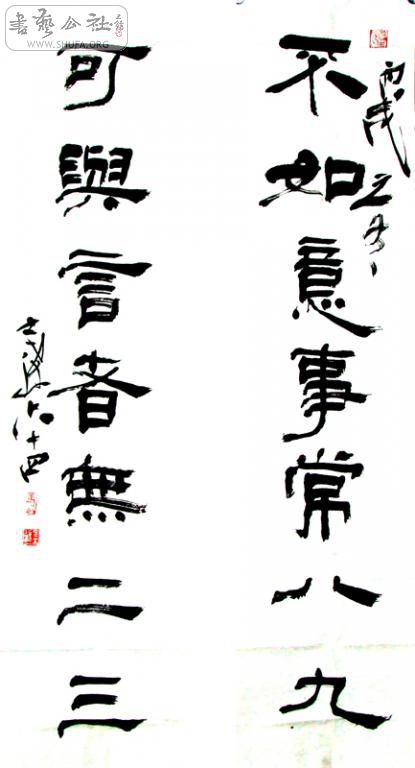 丙戌之冬
不如意事常八九
可與言者無二三
書藝公社
WWW.SHUFA.ORG